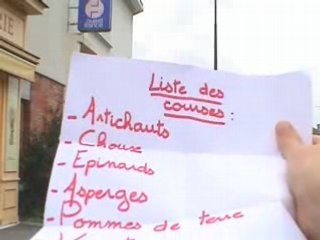 Liste des
courses :
- Artichauts
- Choux
- Epinards
- Asperges
- Pommes de terre